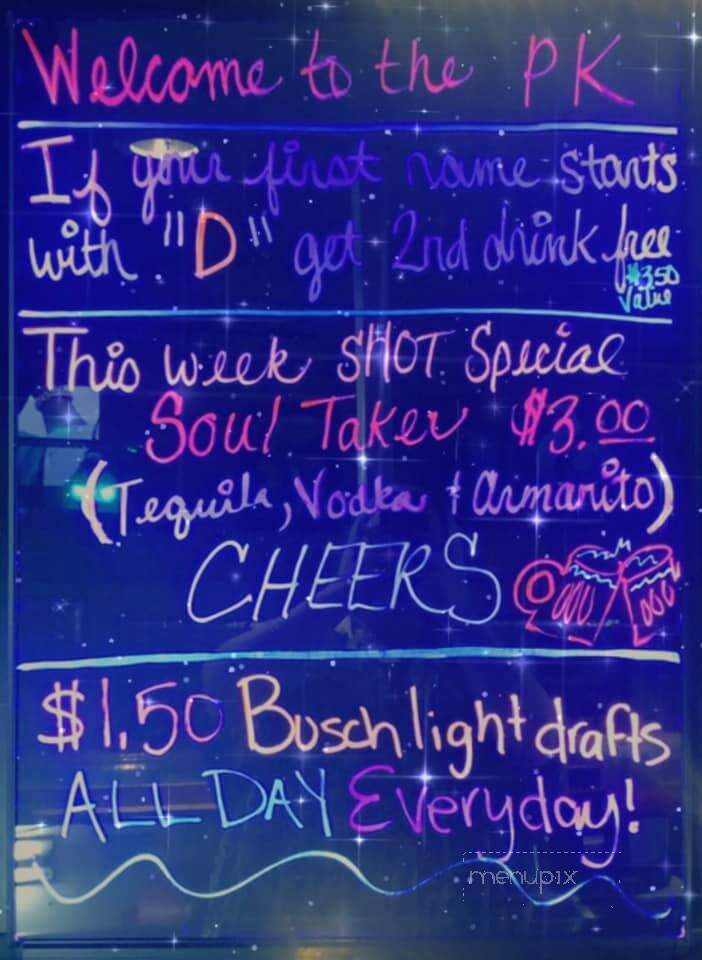 Welcome to the PK
If your first name starts
with "D" get 2nd drink free
$3.50
Value
This week SHOT Special
Soul Taker $3.00
(Tequila, Vodka + Armarito)
CHEERS
$1.50 Busch light drafts
ALL DAY Everyday!
menupix